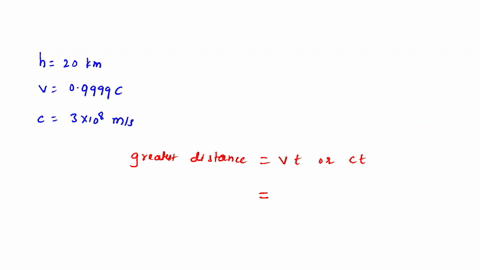 h = 20 km
v = 0.9999c
c = 3×10⁸ m/s
greatest distance = vt or ct
=